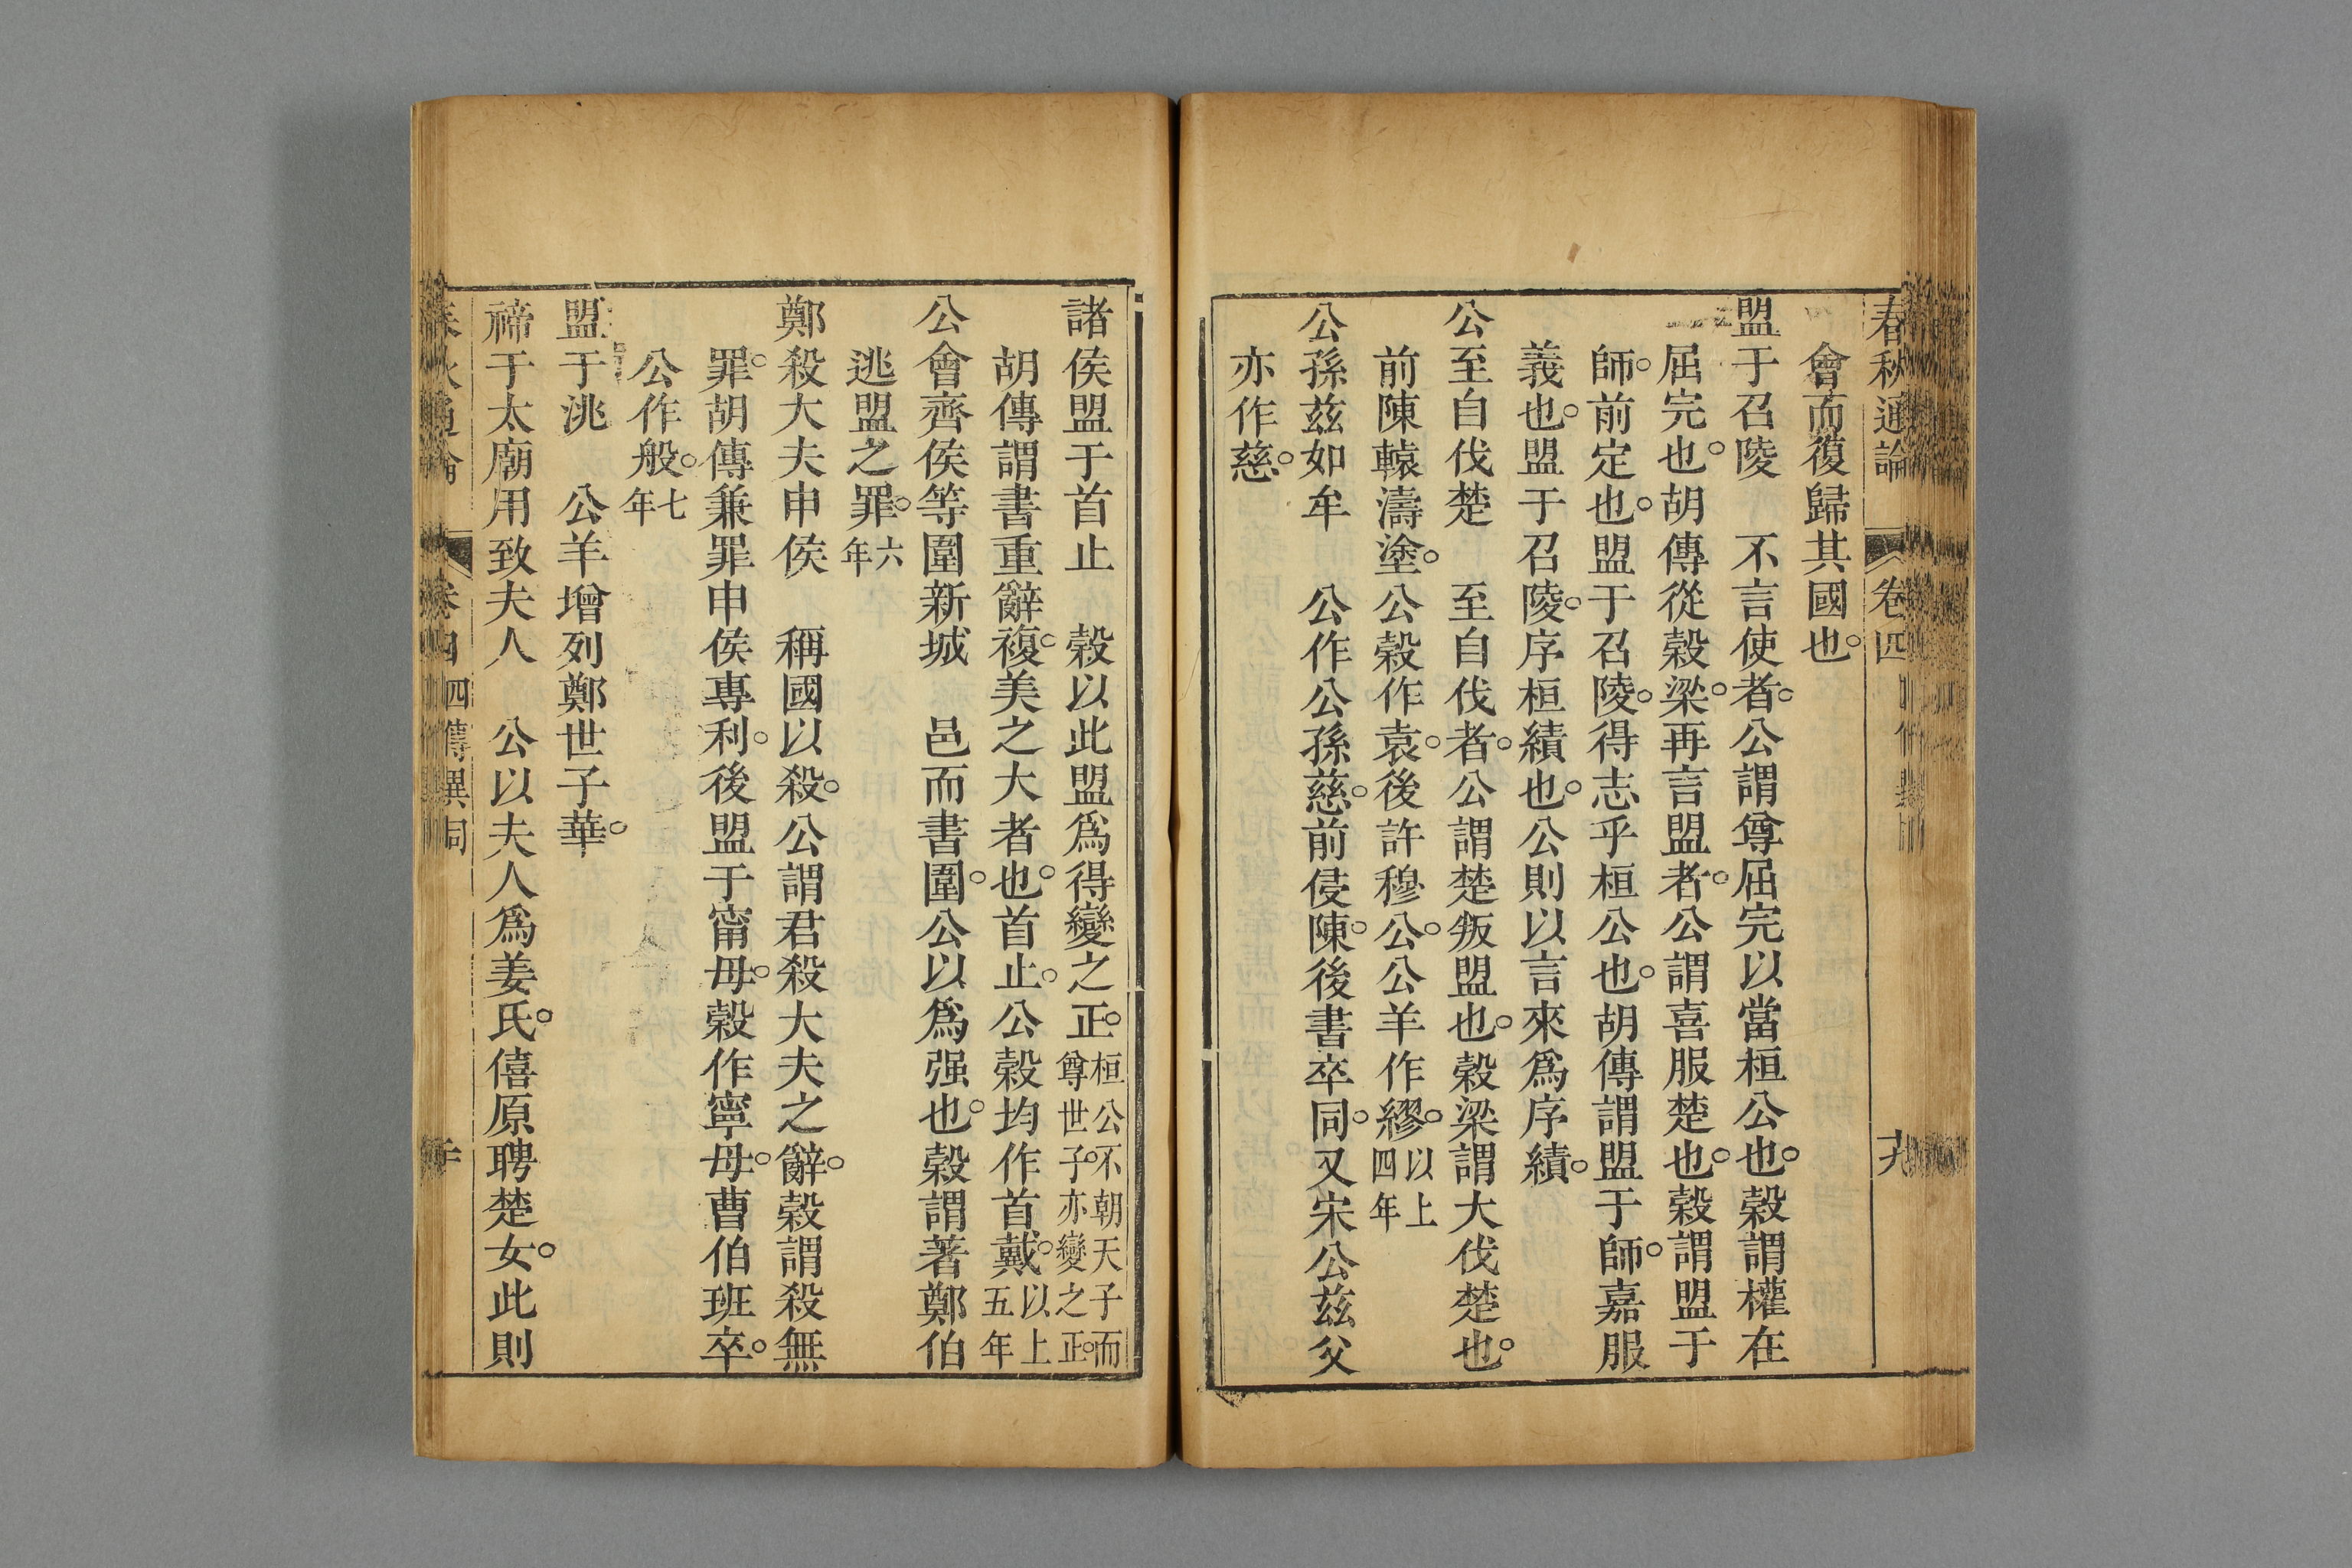 春秋通論　卷四　十九
會而復歸其國也。
盟于召陵　不言使者。公謂尊屈完以當桓公也。穀謂權在
屈完也。胡傳從穀梁。再言盟者。公謂喜服楚也。穀謂盟于
師。前定也。盟于召陵。得志乎桓公也。胡傳謂盟于師。嘉服
義也。盟于召陵。序桓績也。公則以言來爲序績。
公至自伐楚　至自伐者。公謂楚叛盟也。穀梁謂大伐楚也。
前陳轅濤塗。公穀作袁。後許穆公。公羊作繆。以上四年
公孫茲如牟　公作公孫慈。前侵陳。後書卒同。又宋公茲父
亦作慈。
諸侯盟于首止　穀以此盟爲得變之正。桓公不朝天子而尊世子。亦變之正。
胡傳謂書重辭複。美之大者也。首止。公穀均作首戴。以上五年
公會齊侯等圍新城　邑而書圍。公以爲强也。穀謂著鄭伯
逃盟之罪。六年
鄭殺大夫申侯　稱國以殺。公謂君殺大夫之辭。穀謂殺無
罪。胡傳兼罪申侯專利。後盟于甯毋。穀作寧毋。曹伯班卒。
公作般。七年
盟于洮　公羊增列鄭世子華。
禘于太廟用致夫人　公以夫人爲姜氏。僖原聘楚女。此則
春秋通論　卷四　四傳異同